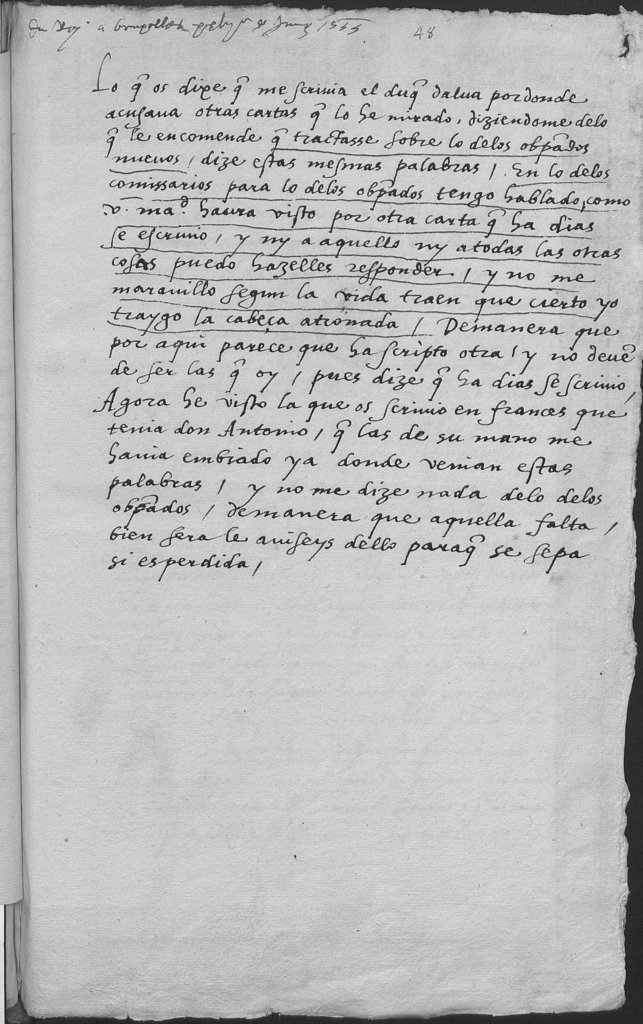 du Roy a bruxelles Juing 1555
48
Lo q̃ os dixe q̃ me scriuia el duq̃ dalua pordonde
acusaua otras cartas q̃ lo he mirado, diziendome delo
q̃ le encomende q̃ tractasse sobre lo delos obp̃ados
nueuos, dize estas mesmas palabras /. En lo delos
comissarios para lo delos obp̃ados tengo hablado, como
v. mad. haura visto por otra carta q̃ ha dias
se escriuio, y ny a aquello ny a todas las otras
cosas puedo hazelles responder, y no me
marauillo segun la vida traen que cierto yo
traygo la cabeça atronada / Demanera que
por aqui parece que ha scripto otra, y no deuẽ
de ser las q̃ oy, pues dize q̃ ha dias se scriuio,
Agora he visto la que os scriuio en frances que
tenia don Antonio, q̃ las de su mano me
hauia embiado ya donde venian estas
palabras, y no me dize nada delo delos
obp̃ados, demanera que aquella falta,
bien sera le auiseys dello paraq̃ se sepa
si es perdida,